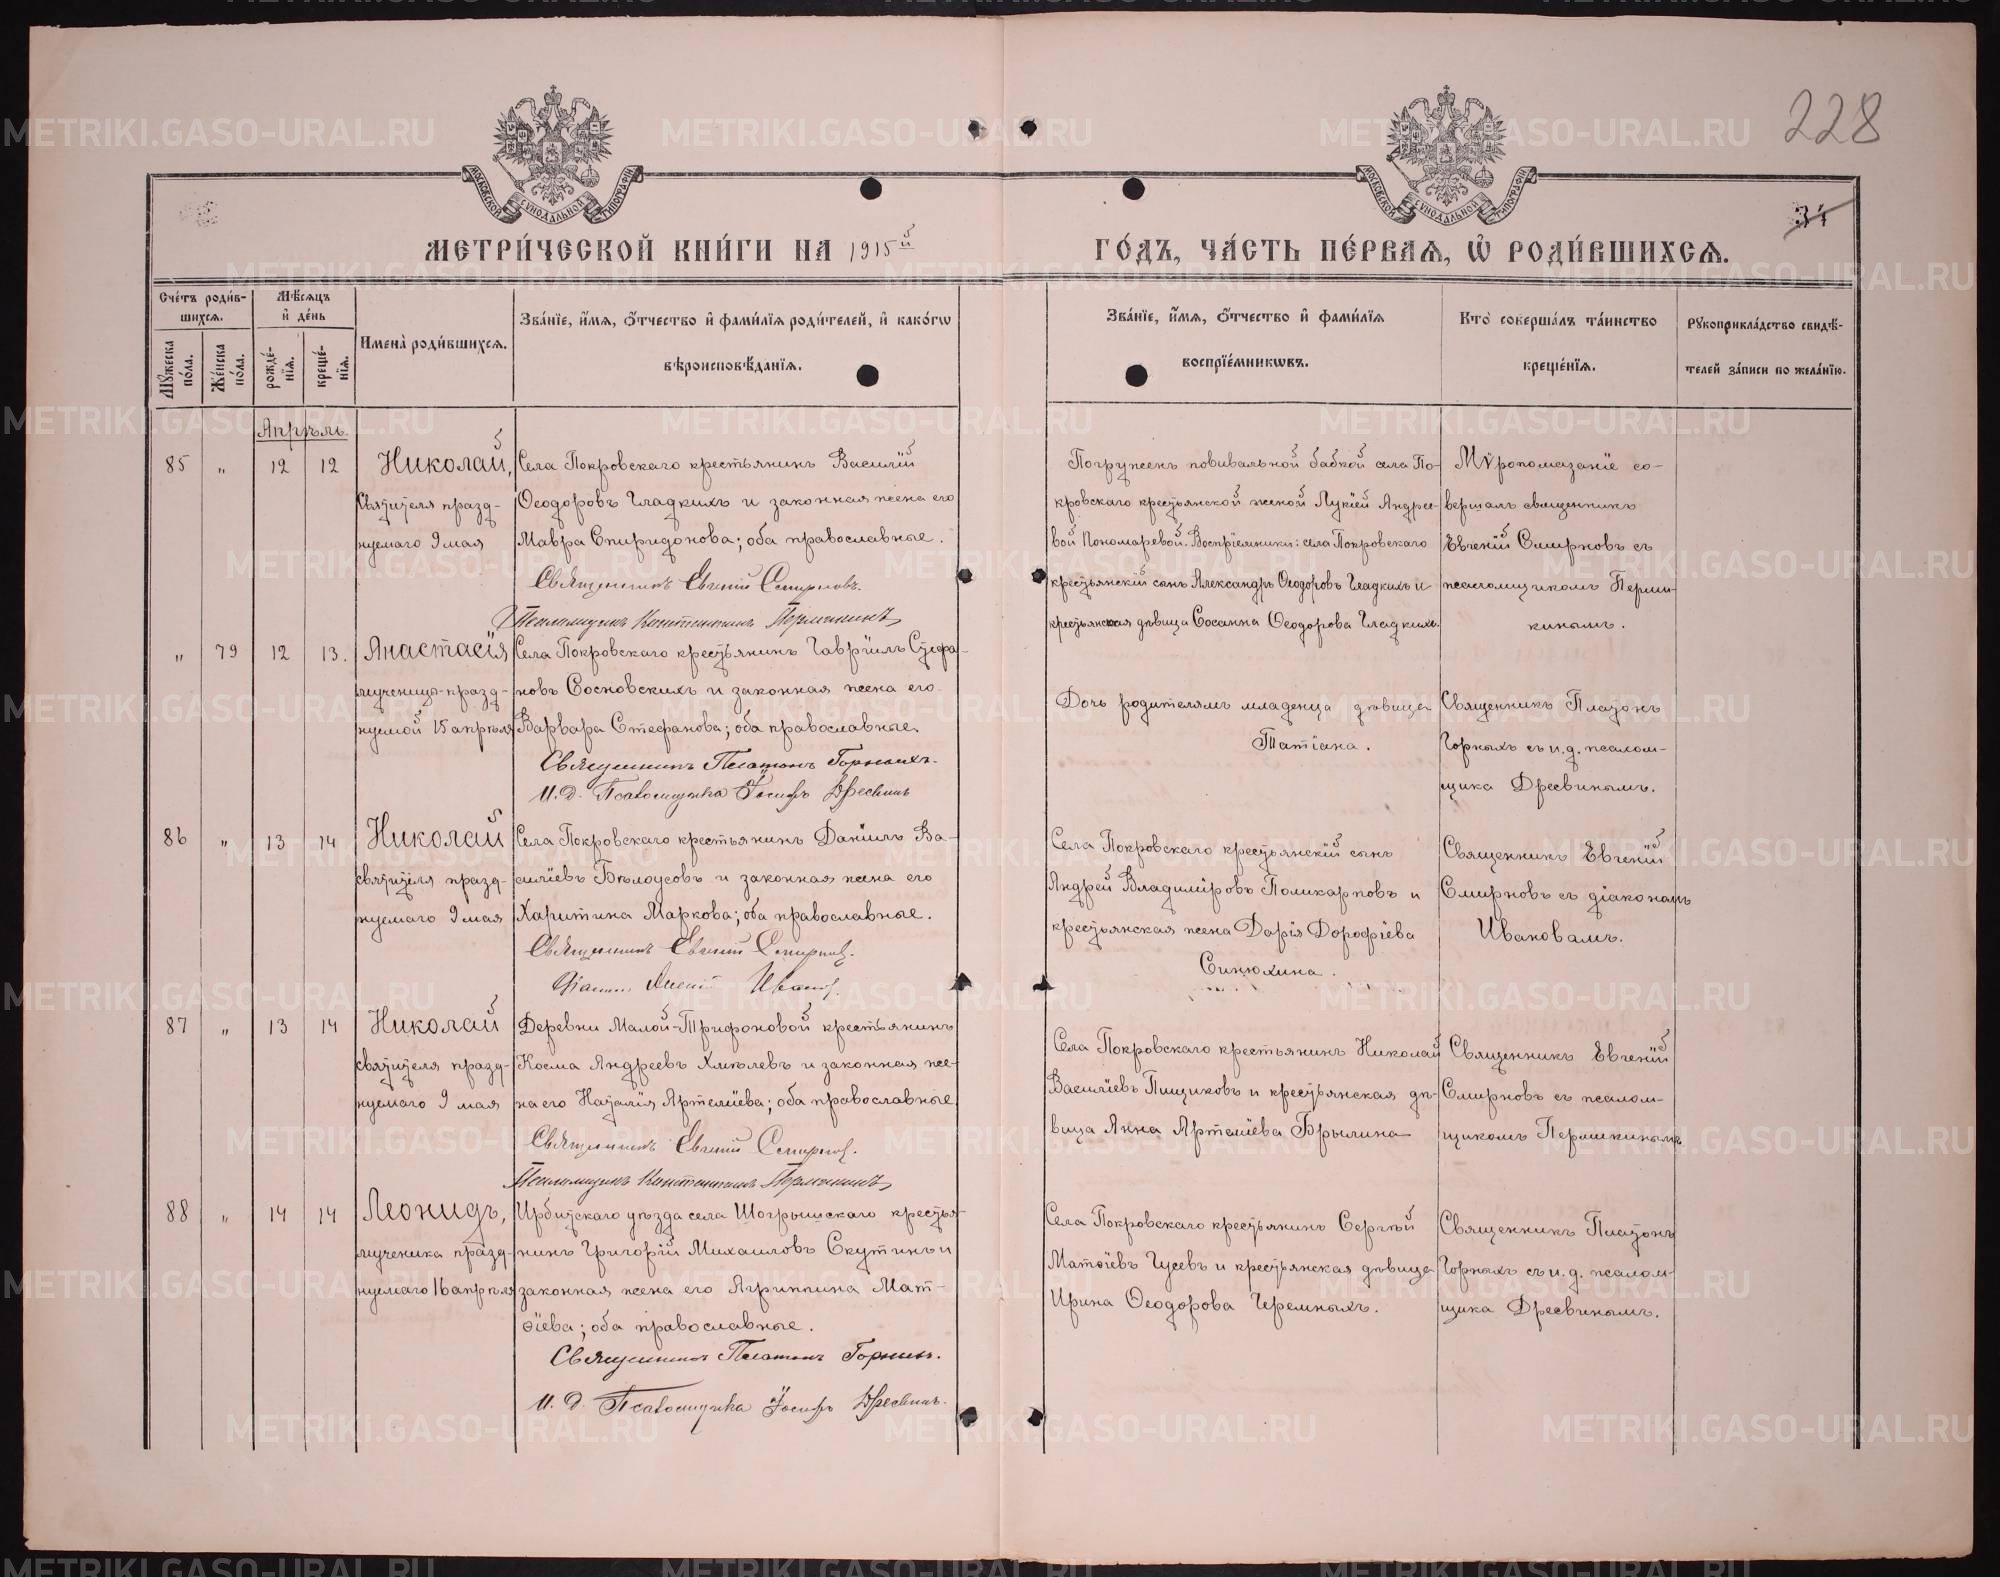 228
31
МОСКОВСКОЙ СѴНОДАЛЬНОЙ ТИПОГРАФІИ
МОСКОВСКОЙ СѴНОДАЛЬНОЙ ТИПОГРАФІИ
МЕТРИ́ЧЕСКОЙ КНИ́ГИ НА 1915й ГО́ДЪ, ЧА́СТЬ ПЕ́РВАѦ, Ѡ҆ РОДИ́ВШИХСѦ.
Сче́тъ роди́в-
шихсѧ.
Мꙋ́жеска по́ла.
Же́нска по́ла.
Мѣ́сѧцъ
и҆ де́нь
рожде́-
нїѧ.
креще́-
нїѧ.
Имена̀ роди́вшихсѧ.
Зва́нїе, и҆́мѧ, ѻ҆́тчество и҆ фами́лїѧ роди́телей, и҆ како́гѡ
вѣроисповѣ́данїѧ.
Зва́нїе, и҆́мѧ, ѻ҆́тчество и҆ фами́лїѧ
воспрїе́мникѡвъ.
Кто̀ соверша́лъ та́инство
креще́нїѧ.
Рꙋкоприкла́дство свидѣ́-
телей за́писи по жела́нїю.
Апрѣль.
85 „ 12 12
Николай,
Святителя празд-
нуемаго 9 мая
Села Покровскаго крестьянинъ Василій
Ѳеодоровъ Гладкихъ и законная жена его
Мавра Спиридонова; оба православные.
Священникъ Евгеній Смирновъ.
Псаломщикъ Константинъ Пермикинъ
Погруженъ повивальной бабкой села По-
кровскаго крестьянской женой Лукіей Андрее-
вой Пономаревой. Воспріемники: села Покровскаго
крестьянскій сынъ Александръ Ѳеодоровъ Гладкихъ и
крестьянская дѣвица Сосанна Ѳеодорова Гладкихъ.
Мѵропомазаніе со-
вершалъ священникъ
Евгеній Смирновъ съ
псаломщикомъ Перми-
кинымъ.
„ 79 12 13.
Анастасія
мученицы празд-
нуемой 15 апрѣля
Села Покровскаго крестьянинъ Гавріилъ Стефа-
новъ Сосновскихъ и законная жена его
Варвара Стефанова; оба православные.
Священникъ Платонъ Горныхъ.
И. д. Псаломщика Іосифъ Дресвинъ
Дочь родителямъ младенца дѣвица
Татіана.
Священникъ Платонъ
Горныхъ съ и. д. псалом-
щика Дресвинымъ.
86 „ 13 14
Николай
святителя празд-
нуемаго 9 мая
Села Покровскаго крестьянинъ Даніилъ Ва-
силіевъ Бѣлоусовъ и законная жена его
Харитина Маркова; оба православные.
Священникъ Евгеній Смирновъ.
Діаконъ Алексій Ивановъ.
Села Покровскаго крестьянскій сынъ
Андрей Владиміровъ Поликарповъ и
крестьянская жена Дарія Дорофіева
Синюхина.
Священникъ Евгеній
Смирновъ съ діакономъ
Ивановамъ.
87 „ 13 14
Николай
святителя празд-
нуемаго 9 мая
Деревни Малой-Трифоновой крестьянинъ
Косма Андреевъ Хмѣлевъ и законная же-
на его Наталія Артеміева; оба православные
Священникъ Евгеній Смирновъ.
Псаломщикъ Константинъ Пермикинъ
Села Покровскаго крестьянинъ Николай
Василіевъ Пищиковъ и крестьянская дѣ-
вица Анна Артеміева Брылина
Священникъ Евгеній
Смирновъ съ псалом-
щикомъ Пермикинымъ
88 „ 14 14
Леонидъ,
мученика празд-
нуемаго 16 апрѣля
Ирбитскаго уѣзда села Шогрышскаго крестья-
нинъ Григорій Михаиловъ Скутинъ и
законная жена его Агриппина Мат-
ѳіева; оба православные.
Священникъ Платонъ Горныхъ.
И. д. Псаломщика Іосифъ Дресвинъ.
Села Покровскаго крестьянинъ Сергѣй
Матѳіевъ Гусевъ и крестьянская дѣвица
Ирина Ѳеодорова Черемныхъ.
Священникъ Платонъ
Горныхъ съ и. д. псалом-
щика Дресвинымъ.
METRIKI.GASO-URAL.RU